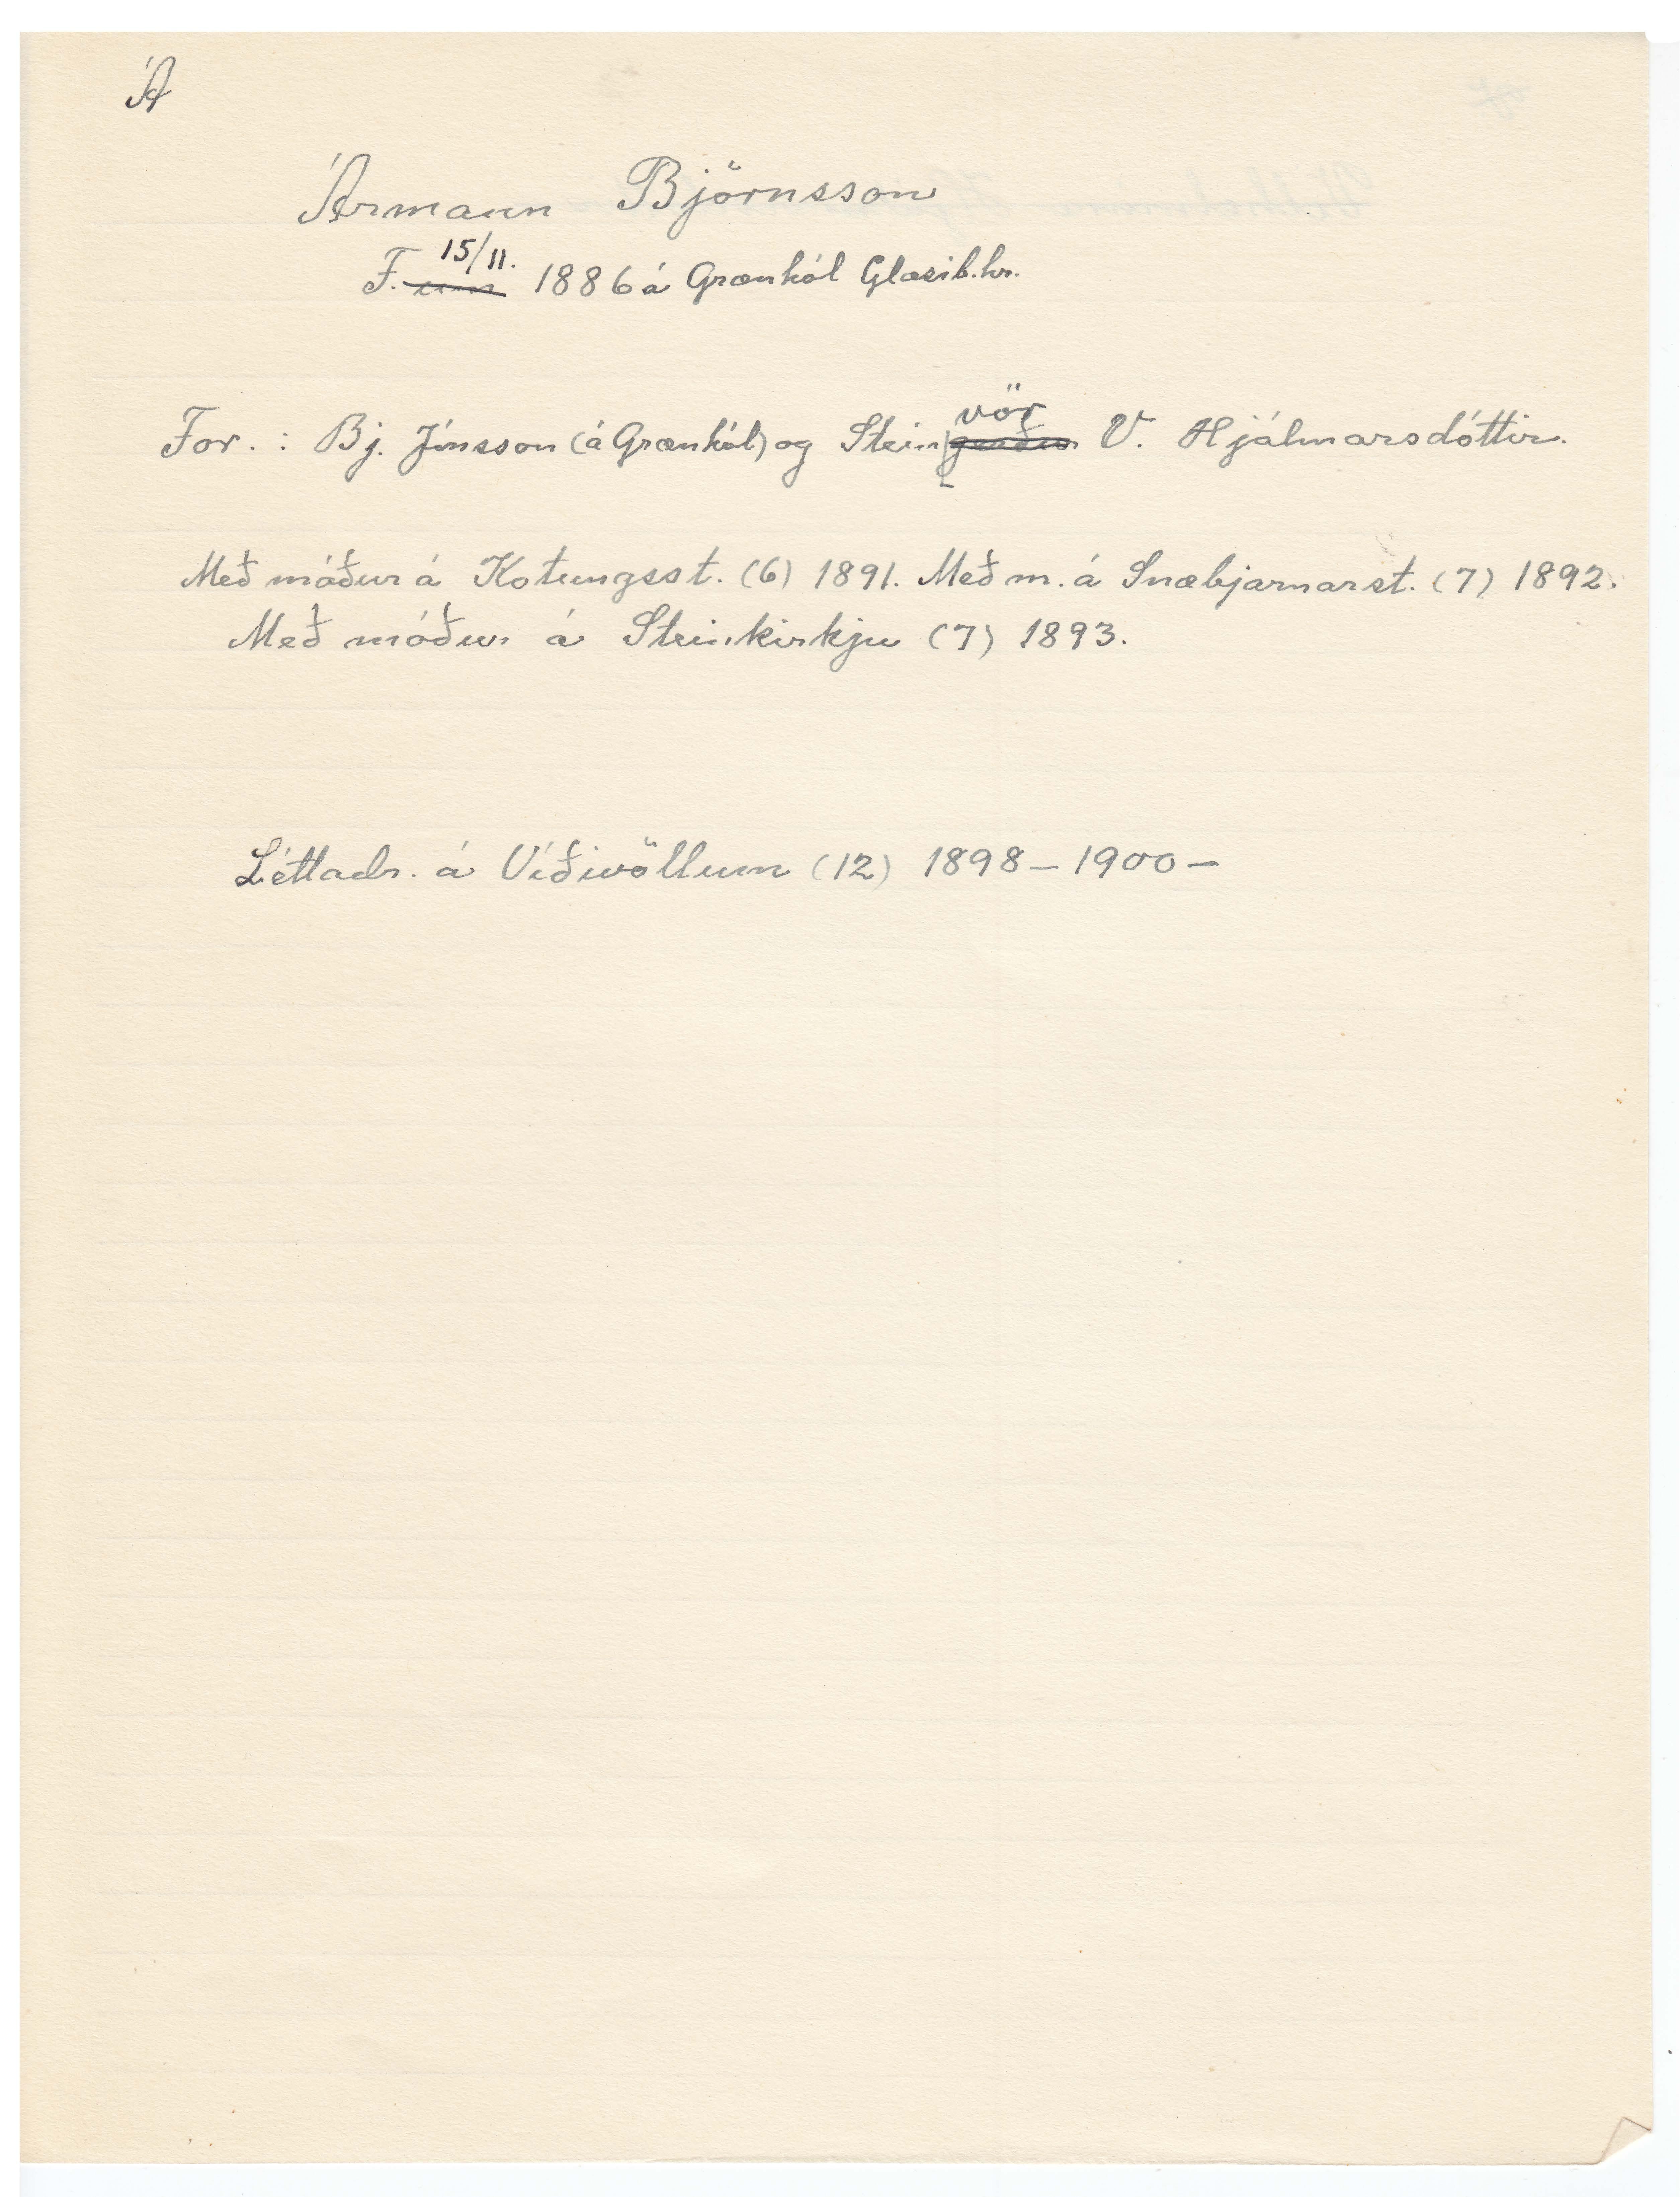 Á
Ármann Björnsson
F. 15/11. 1886 á Grænhól Glæsib.hr.
For. : Bj. Jónsson (á Grænhól) og Steinvör V. Hjálmarsdóttir.
Með móður á Kotungsst. (6) 1891. Með m. á Snæbjarnarst. (7) 1892.
Með móður á Steinkirkju (7) 1893.
Léttadr. á Víðivöllum (12) 1898 – 1900 –